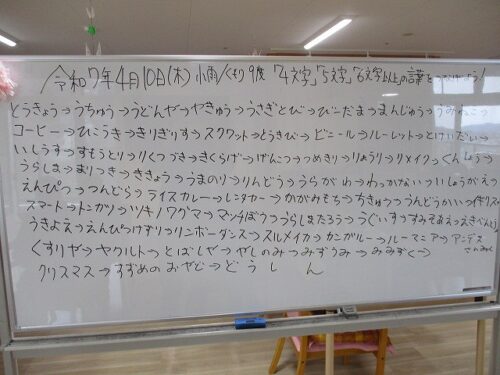 令和7年4月10日(木) 小雨/くもり 9度 「4文字」「5文字」「6文字以上」の言葉をつなげよう!
とうきょう→うちゅう→うどんや→やきゅう→うさぎとび→びーだま→まんじゅう→うみねこ→
コーヒー→ひこうき→きりぎりす→スクワット→とうきび→ビニール→ルーレット→とけいだい→
いしうす→すもうとり→りくつづき→きくらげ→げんこつ→つめきり→りょうり→リメイク→くんしょう→
うらしま→まりつき→ききょう→うまのり→りんどう→うらがわ→わっかない→いしょうがえ→
えんぴつ→つんどら→ライスカレー→レンタカー→かがみもち→ちきゅう→うんどうかい→イギリス→
スマート→トンガリ→ツキノワグマ→マンボウ→うらしまたろう→うぐいす→すみそあえ→えきべんとう
うきよえ→えんぴつけずり→リンボーダンス→スルメイカ→カンガルー→ルーマニア→アンデスさんみゃく
くすりや→ヤクルト→とばしや→やしのみ→みずうみ→みみずく→
クリスマス→すずめのおやど→どうしん